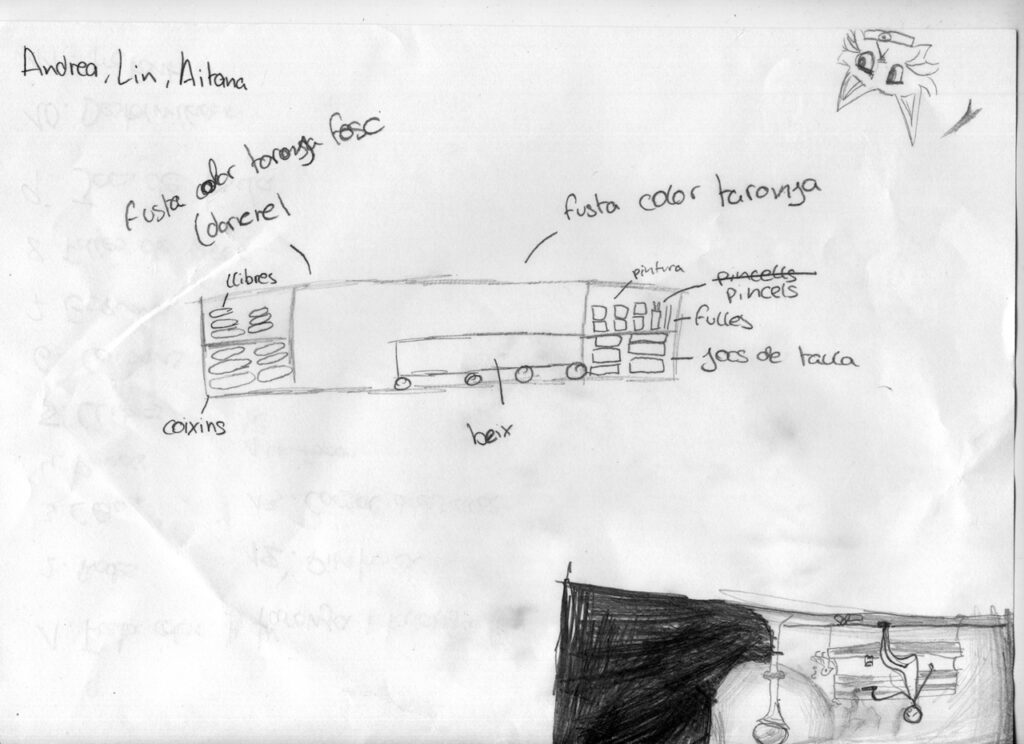 Andrea, Lin, Aitana
fusta color taronja fosc
(darrere)
fusta color taronja
llibres
pintura
pincells
pincels
fulles
jocs de taula
coixins
beix